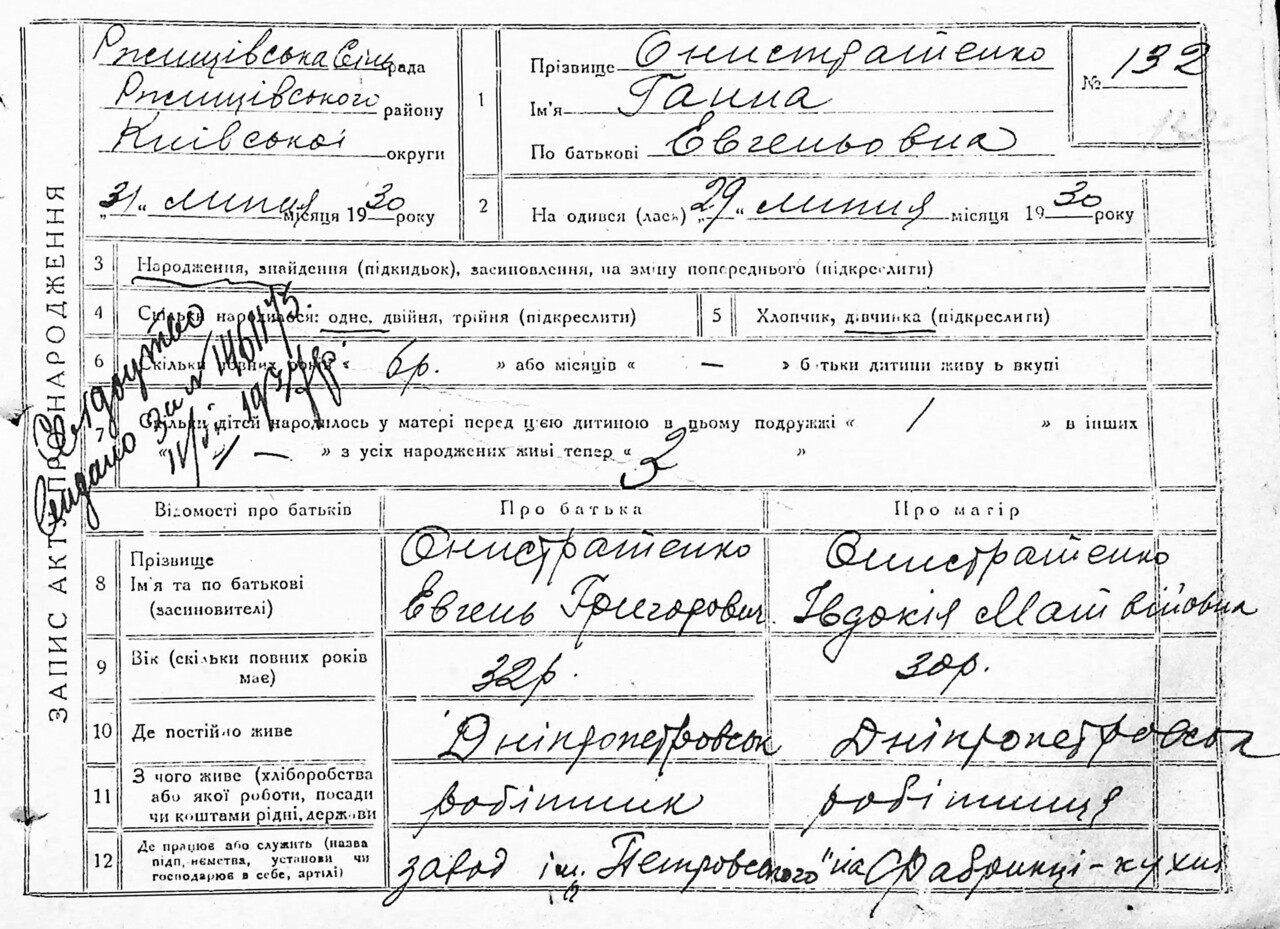 ЗАПИС АКТУ ПРО НАРОДЖЕННЯ
Ржищівська Сіль рада
Ржищівського району
Київської округи
„31“ липня місяця 1930 року
1
Прізвище Онистратенко
Ім'я Ганна
По батькові Евгеньовна
№ 132
2
На одився (лася) „29“ липня місяця 1930 року
3 Народження, знайдення (підкидьок), засиновлення, на зміну попереднього (підкреслити)
4 Скільки народилося: одне, двійня, трійня (підкреслити)
5 Хлопчик, дівчинка (підкреслити)
6 Скільки повних років « 6р. » або місяців « — » б тьки дитини живу ь вкупі
7 Скільки дітей народилось у матері перед ц'єю дитиною в цьому подружжі « 1 » в інших
« — » з усіх народжених живі тепер « 2 »
Свідоцтво
видано за № 1461173.
Відомості про батьків
Про батька
Про матір
8
Прізвище
Ім'я та по батькові
(засиновителі)
Онистратенко
Евгень Григорович.
Онистратенко
Івдокія Матвійовна
9
Вік (скільки повних років
має)
32р.
30р.
10
Де постійно живе
Дніпропетровськ
Дніпропетровськ
11
З чого живе (хліборобства
або якої роботи, посади
чи коштами рідні, держави
робітник
робітниця
12
Де працює або служить (назва
підп, иємства, установи чи
господарює в себе, артілі)
завод ім. Петровського
на Фабриці-кухні